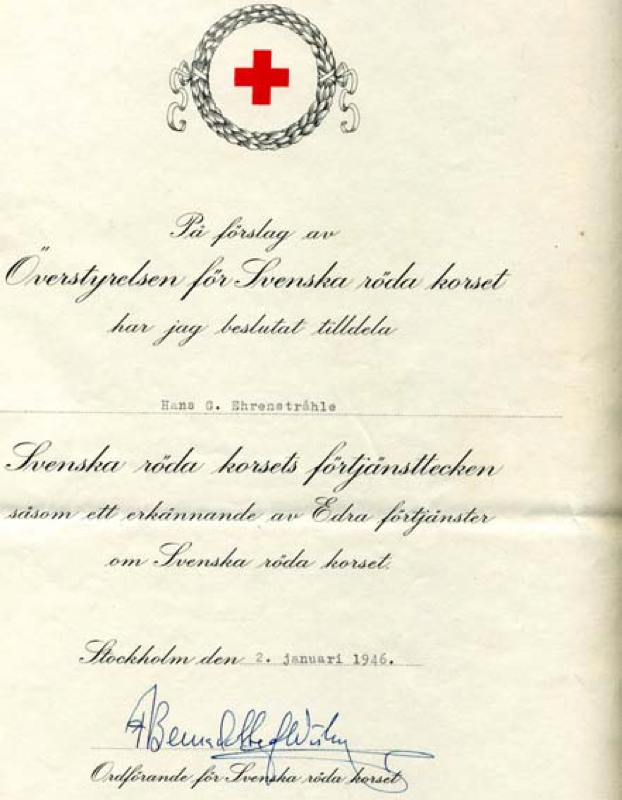 På förslag av
Överstyrelsen för Svenska röda korset
har jag beslutat tilldela
Hans G. Ehrenstråhle
Svenska röda korsets förtjänsttecken
såsom ett erkännande av Edra förtjänster
om Svenska röda korset.
Stockholm den 2. januari 1946.
Ordförande för Svenska röda korset